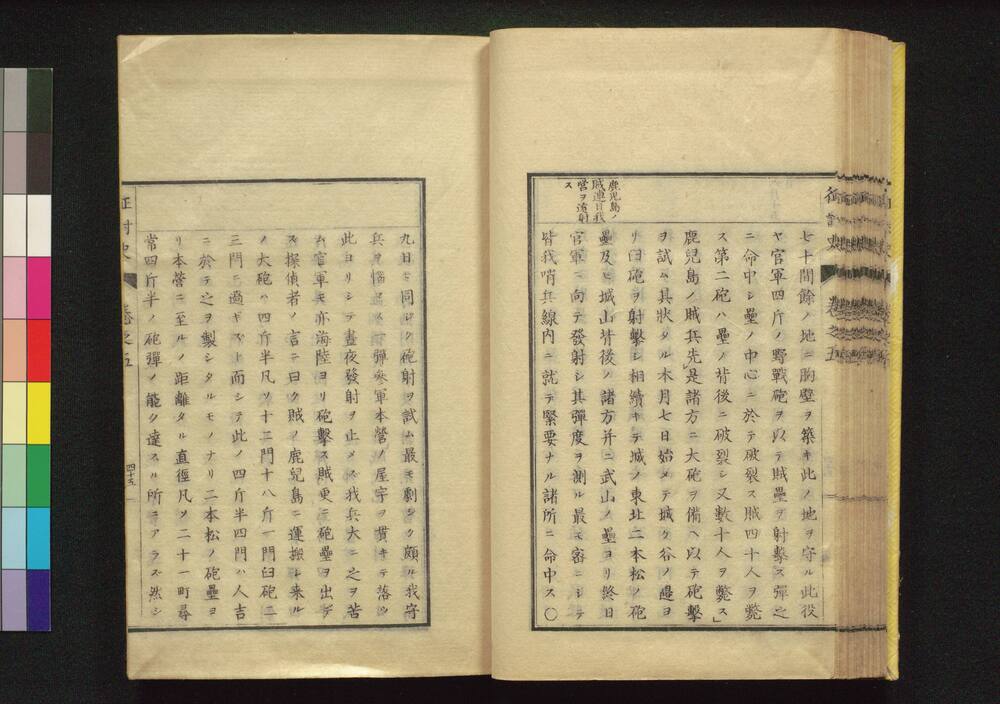 七十間餘ノ地ニ胸壁ヲ築キ此ノ地ヲ守ル此役
ヤ官軍四斤ノ野戰砲ヲ以テ賊壘ヲ射撃ス彈之
ニ命中シ壘ノ中心ニ於テ破裂ス賊四十人ヲ斃
ス第二砲ハ壘ノ背後ニ破裂シ又數十人ヲ斃ス」
鹿兒島ノ賊兵先是諸方ニ大砲ヲ備ヘ以テ砲撃
ヲ試ム其狀タル本月七日始メテ城ケ谷ノ邉ヨ
リ臼砲ヲ射擊シ相續キテ城ノ東北二本松ノ砲
壘及ヒ城山背後ノ諸方并ニ武山ノ壘ヨリ終日
官軍ニ向テ發射シ其彈度ヲ測ル最モ密ニシテ
皆我哨兵線内ニ就テ緊要ナル諸所ニ命中ス〇
鹿児島ノ
賊連日我
營ヲ
ス
征討史
巻之五
九日モ同シク砲射ヲ試ム最モ劇シク頗ル我守
兵ヲ惱マス一彈參軍本營ノ屋宇ヲ貫キテ落ツ
此ヨリシテ晝夜發射ヲ止メス我兵大ニ之ヲ苦
ム官軍モ亦海陸ヨリ砲擊ス賊更ニ砲壘ヲ出デ
ス探偵者ノ言ニ曰ク賊ノ鹿兒島ニ運搬シ来ル
ノ大砲ハ四斤半凡ソ十二門十八斤一門臼砲二
三門ニ過ギスト而シテ此ノ四斤半四門ハ人吉
ニ於テ之ヲ製シタルモノナリ二本松ノ砲壘ヨ
リ本營ニ至ルノ距離タル直徑凡ソ二十一町尋
常四斤半ノ砲彈ノ能ク達スル所ニアラズ然シ
征討史
巻之五
四十五